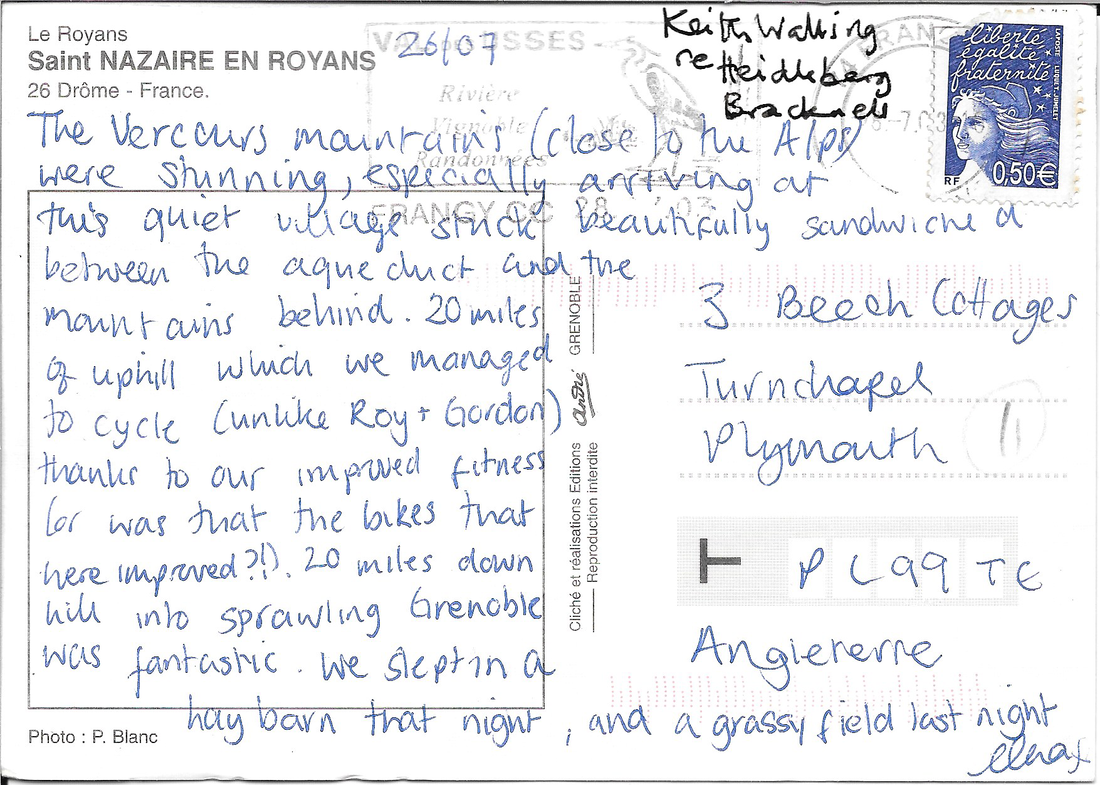 Le Royans
Saint NAZAIRE EN ROYANS
26 Drôme - France.
26/07
Keith Walling
re Heidleberg
Bracknell
Rivière
Vignoble
Randonnées
FRANGY CC 28 7 03
liberté
égalité
fraternité
LA POSTE
LUQUET-JUMELET
RF
0,50€
The Vercours mountains (close to the Alps)
were stunning, especially arriving at
this quiet village stuck beautifully sandwiched
between the aqueduct and the
mountains behind. 20 miles
of uphill which we managed
to cycle (unlike Roy + Gordon)
thanks to our improved fitness
(or was that the bikes that
were improved?!). 20 miles down
hill into sprawling Grenoble
was fantastic. We slept in a
hay barn that night, and a grassy field last night
3 Beech Cottages
Turnchapel
Plymouth
11
T PL99TE
Angleterre
Cliché et réalisations Editions André GRENOBLE
Reproduction interdite
Photo : P. Blanc